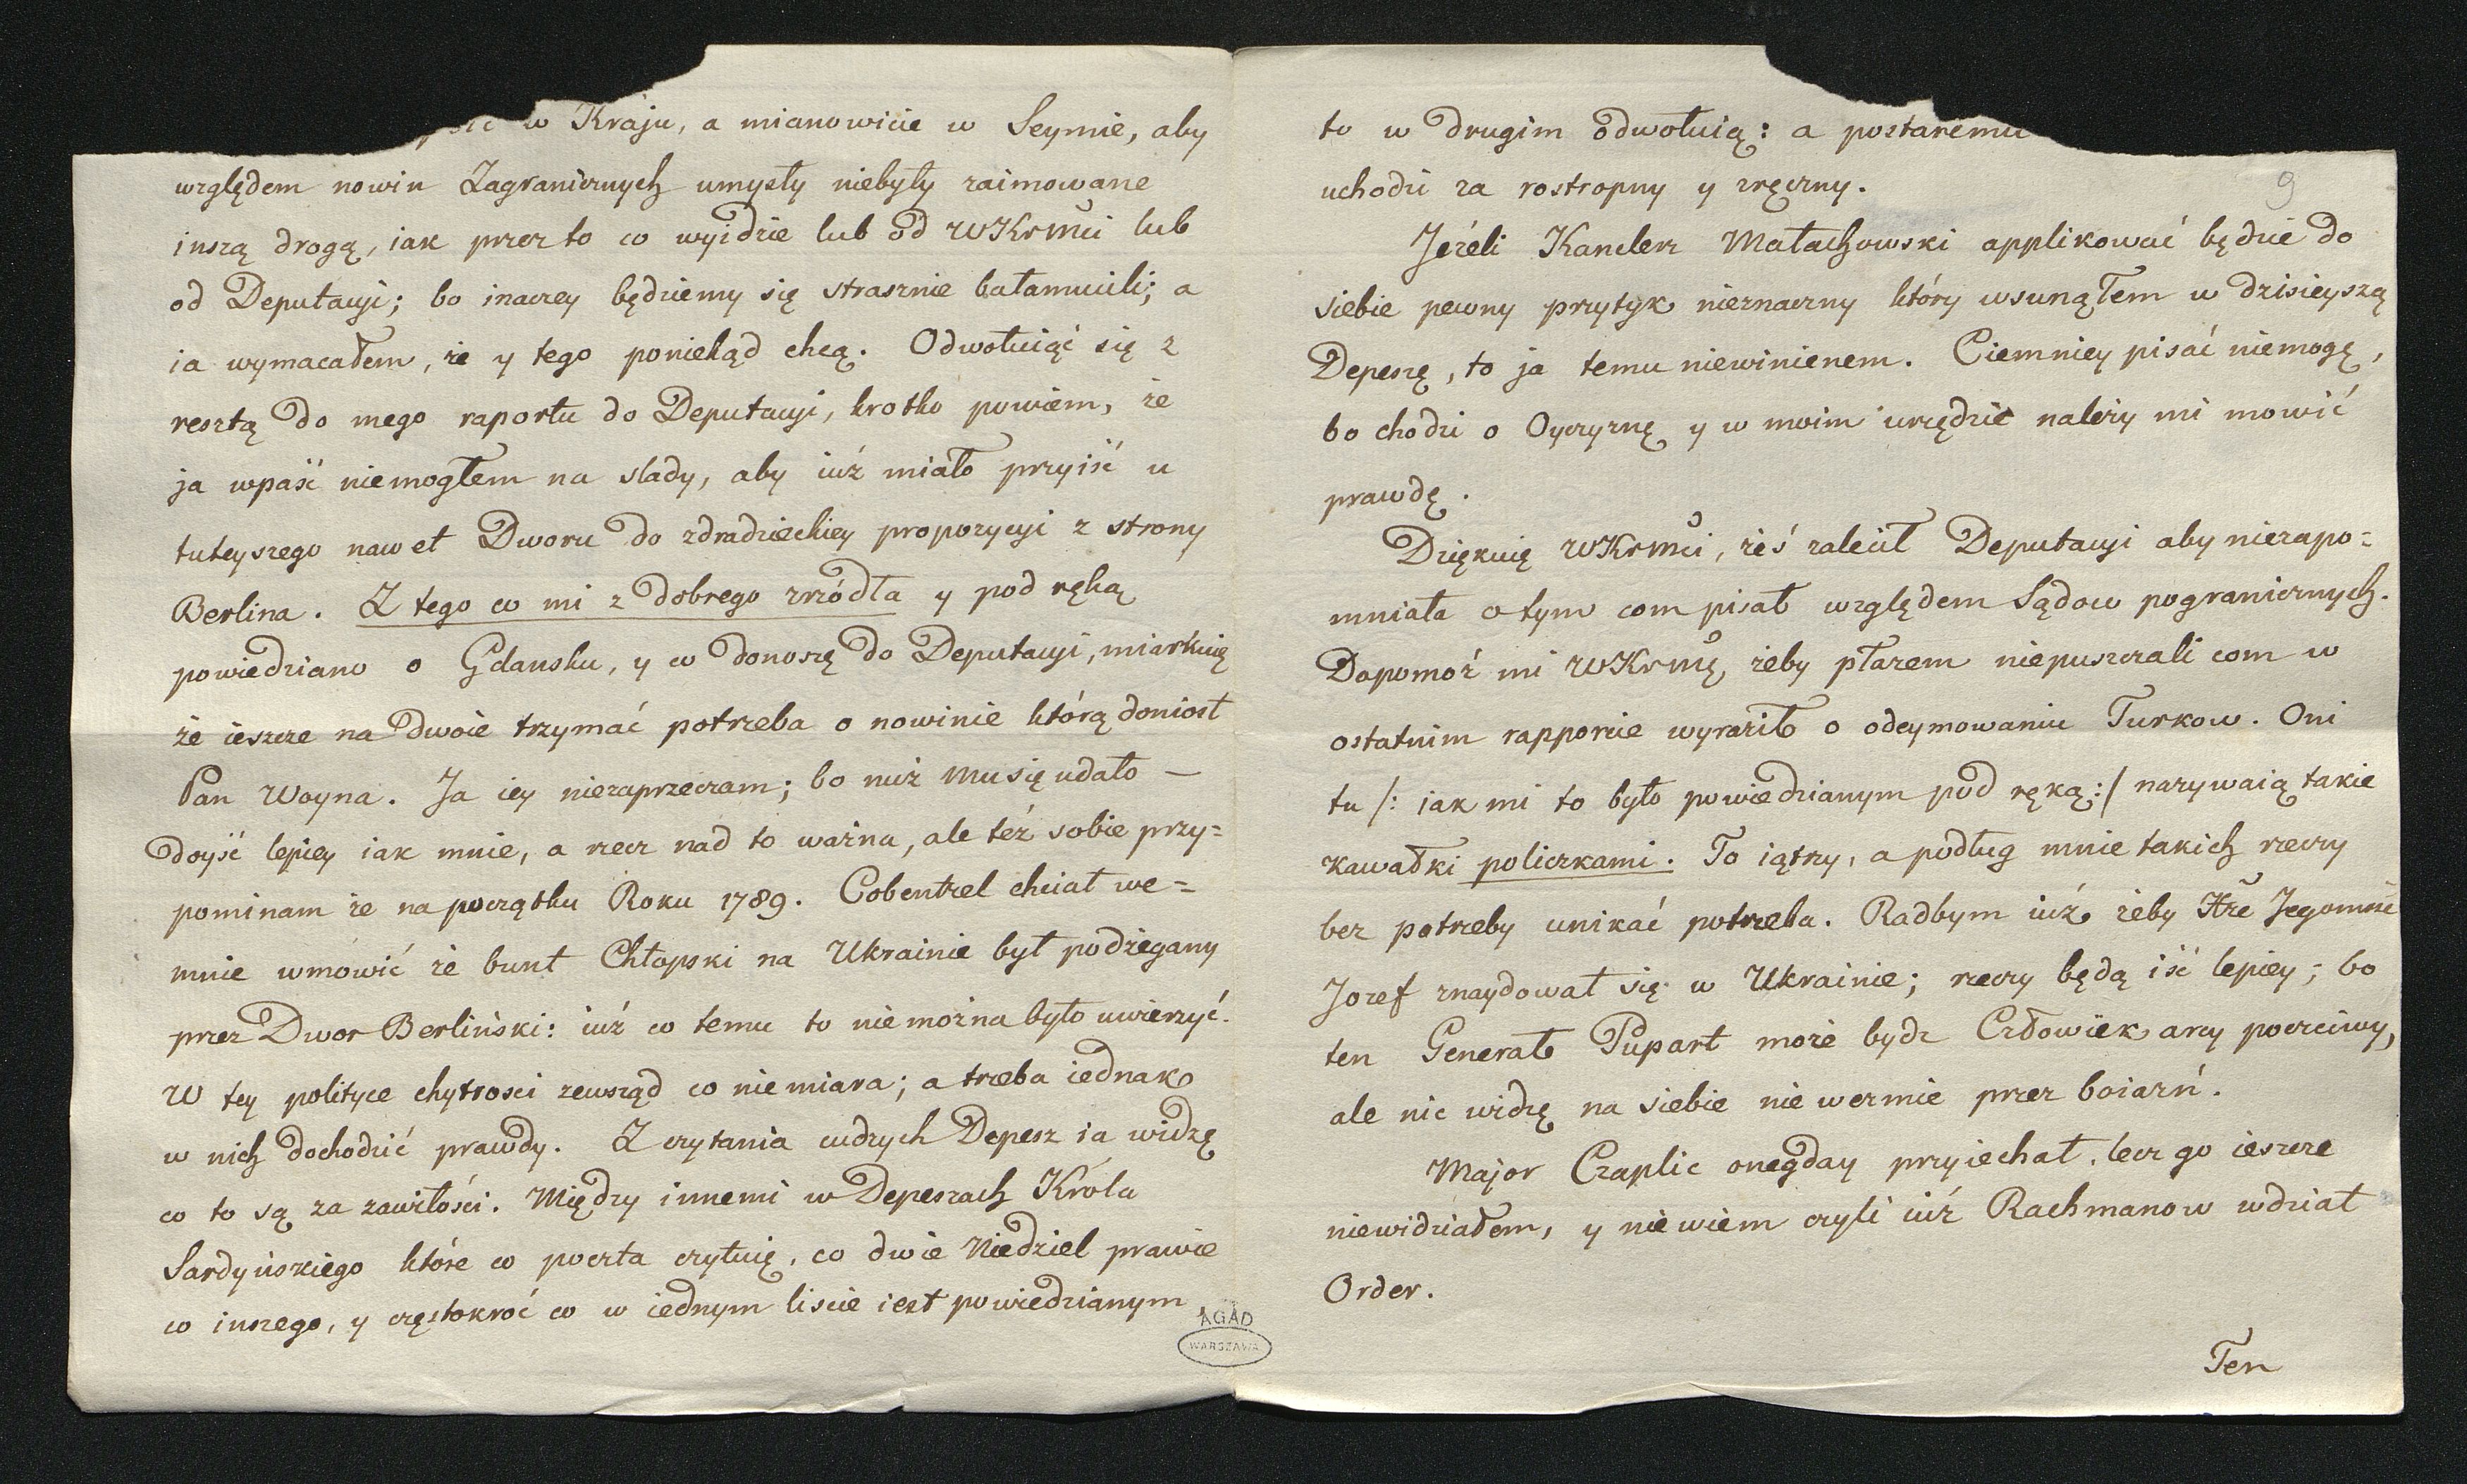 w Kraju, a mianowicie w Seymie, aby
względem nowin Zagranicznych umysły niebyły zaimowane
inszą drogą, iak przez to co wyidzie lub od WKrmći lub
od Deputacyi; bo inaczey będziemy się strasznie bałamucili; a
ia wymacałem, że y tego poniekąd chcą. Odwołuiąć się z
resztą do mego raportu do Deputacyi, krotko powiem, że
ja wpaść niemogłem na slady, aby iuż miało przyiść u
tuteyszego nawet Dworu do zdradzieckiey propozycyi z strony
Berlina. Z tego co mi z dobrego zrzódła y pod ręką
powiedziano o Gdansku, y co donoszę do Deputacyi, miarkuię
że ieszcze na dwoie trzymać potrzeba o nowinie którą doniosł
Pan Woyna. Ja iey niezaprzeczam; bo nuż mu się udało —
doyść lepiey iak mnie, a rzecz nad to ważna, ale też sobie przy=
pominam że na początku Roku 1789. Cobentzel chciał we=
mnie wmówić że bunt Chłopski na Ukrainie był podżegany
przez Dwor Berliński: iuż co temu to nie można było uwierzyć.
W tey polityce chytrosci zewsząd co nie miara; a trzeba iednak
w nich dochodzić prawdy. Z czytania cudzych Depesz ia widzę
co to są za zawiłości. Między innemi w Depeszach Króla
Sardyńskiego które co poczta czytuię, co dwie Niedziel prawie
co inszego, y częstokroć co w iednym liscie iest powiedzianym,
AGAD
WARSZAWA
to w drugim odwołuią: a postaremu
uchodzi za rostropny y zręczny.
9
Jeżeli Kanclerz Małachowski applikować będzie do
siebie pewny przytyk nieznaczny który wsunąłem w dzisieyszą
Depeszę, to ja temu niewinienem. Ciemniey pisać niemogę,
bo chodzi o Oyczyznę y w moim urzędzie należy mi mowić
prawdę.
Dziękuię WKrmći, żeś zalecił Deputacyi aby niezapo=
mniała o tym com pisał względem Sądow pogranicznych.
Dopomoż mi WKrmć, żeby płazem niepuszczali com w
ostatnim rapporcie wyraził o odeymowaniu Turkow. Oni
tu /: iak mi to było powiedzianym pod ręką :/ nazywaią takie
kawałki policzkami. To iątrzy, a podług mnie takich rzeczy
bez potrzeby unikać potrzeba. Radbym iuż żeby Xże Jegomość
Jozef znaydował się w Ukrainie; rzeczy będą iść lepiey; bo
ten Generał Pupart może bydź Człowiek arcy poczciwy,
ale nic widzę na siebie nie wezmie przez boiazń.
Major Czaplic onegday przyiechał, lecz go ieszcze
niewidziałem, y nie wiem czyli iuż Rachmanow wdział
Order.
Ten